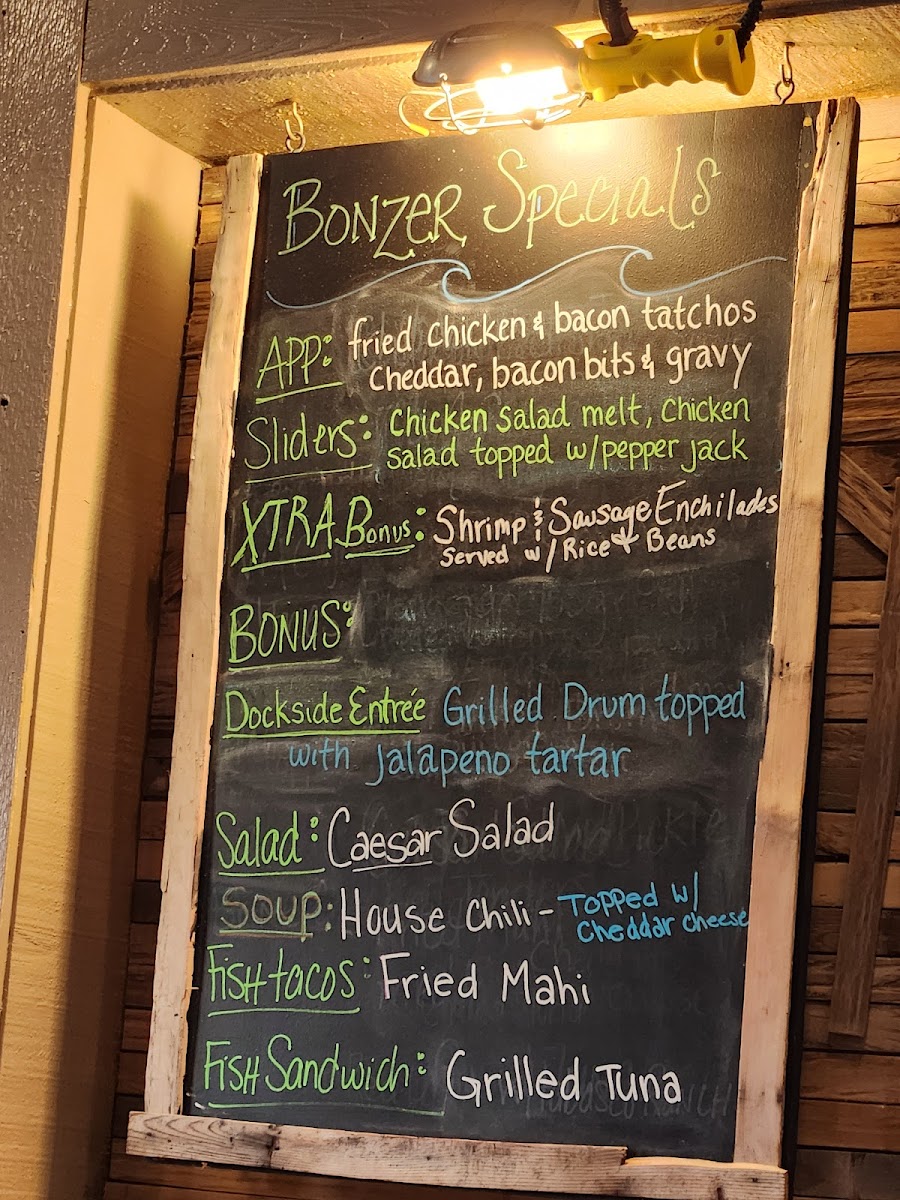 Bonzer Specials
App: fried chicken & bacon tatchos
Cheddar, bacon bits & gravy
Sliders: Chicken salad melt, Chicken
salad topped w/pepper jack
XTRA Bonus: Shrimp & Sausage Enchilades
Served w/ Rice & Beans
BONUS:
Dockside Entrée Grilled Drum topped
with jalapeno tartar
Salad: Caesar Salad
Soup: House Chili - Topped w/
Cheddar Cheese
Fish tacos: Fried Mahi
Fish Sandwich: Grilled Tuna